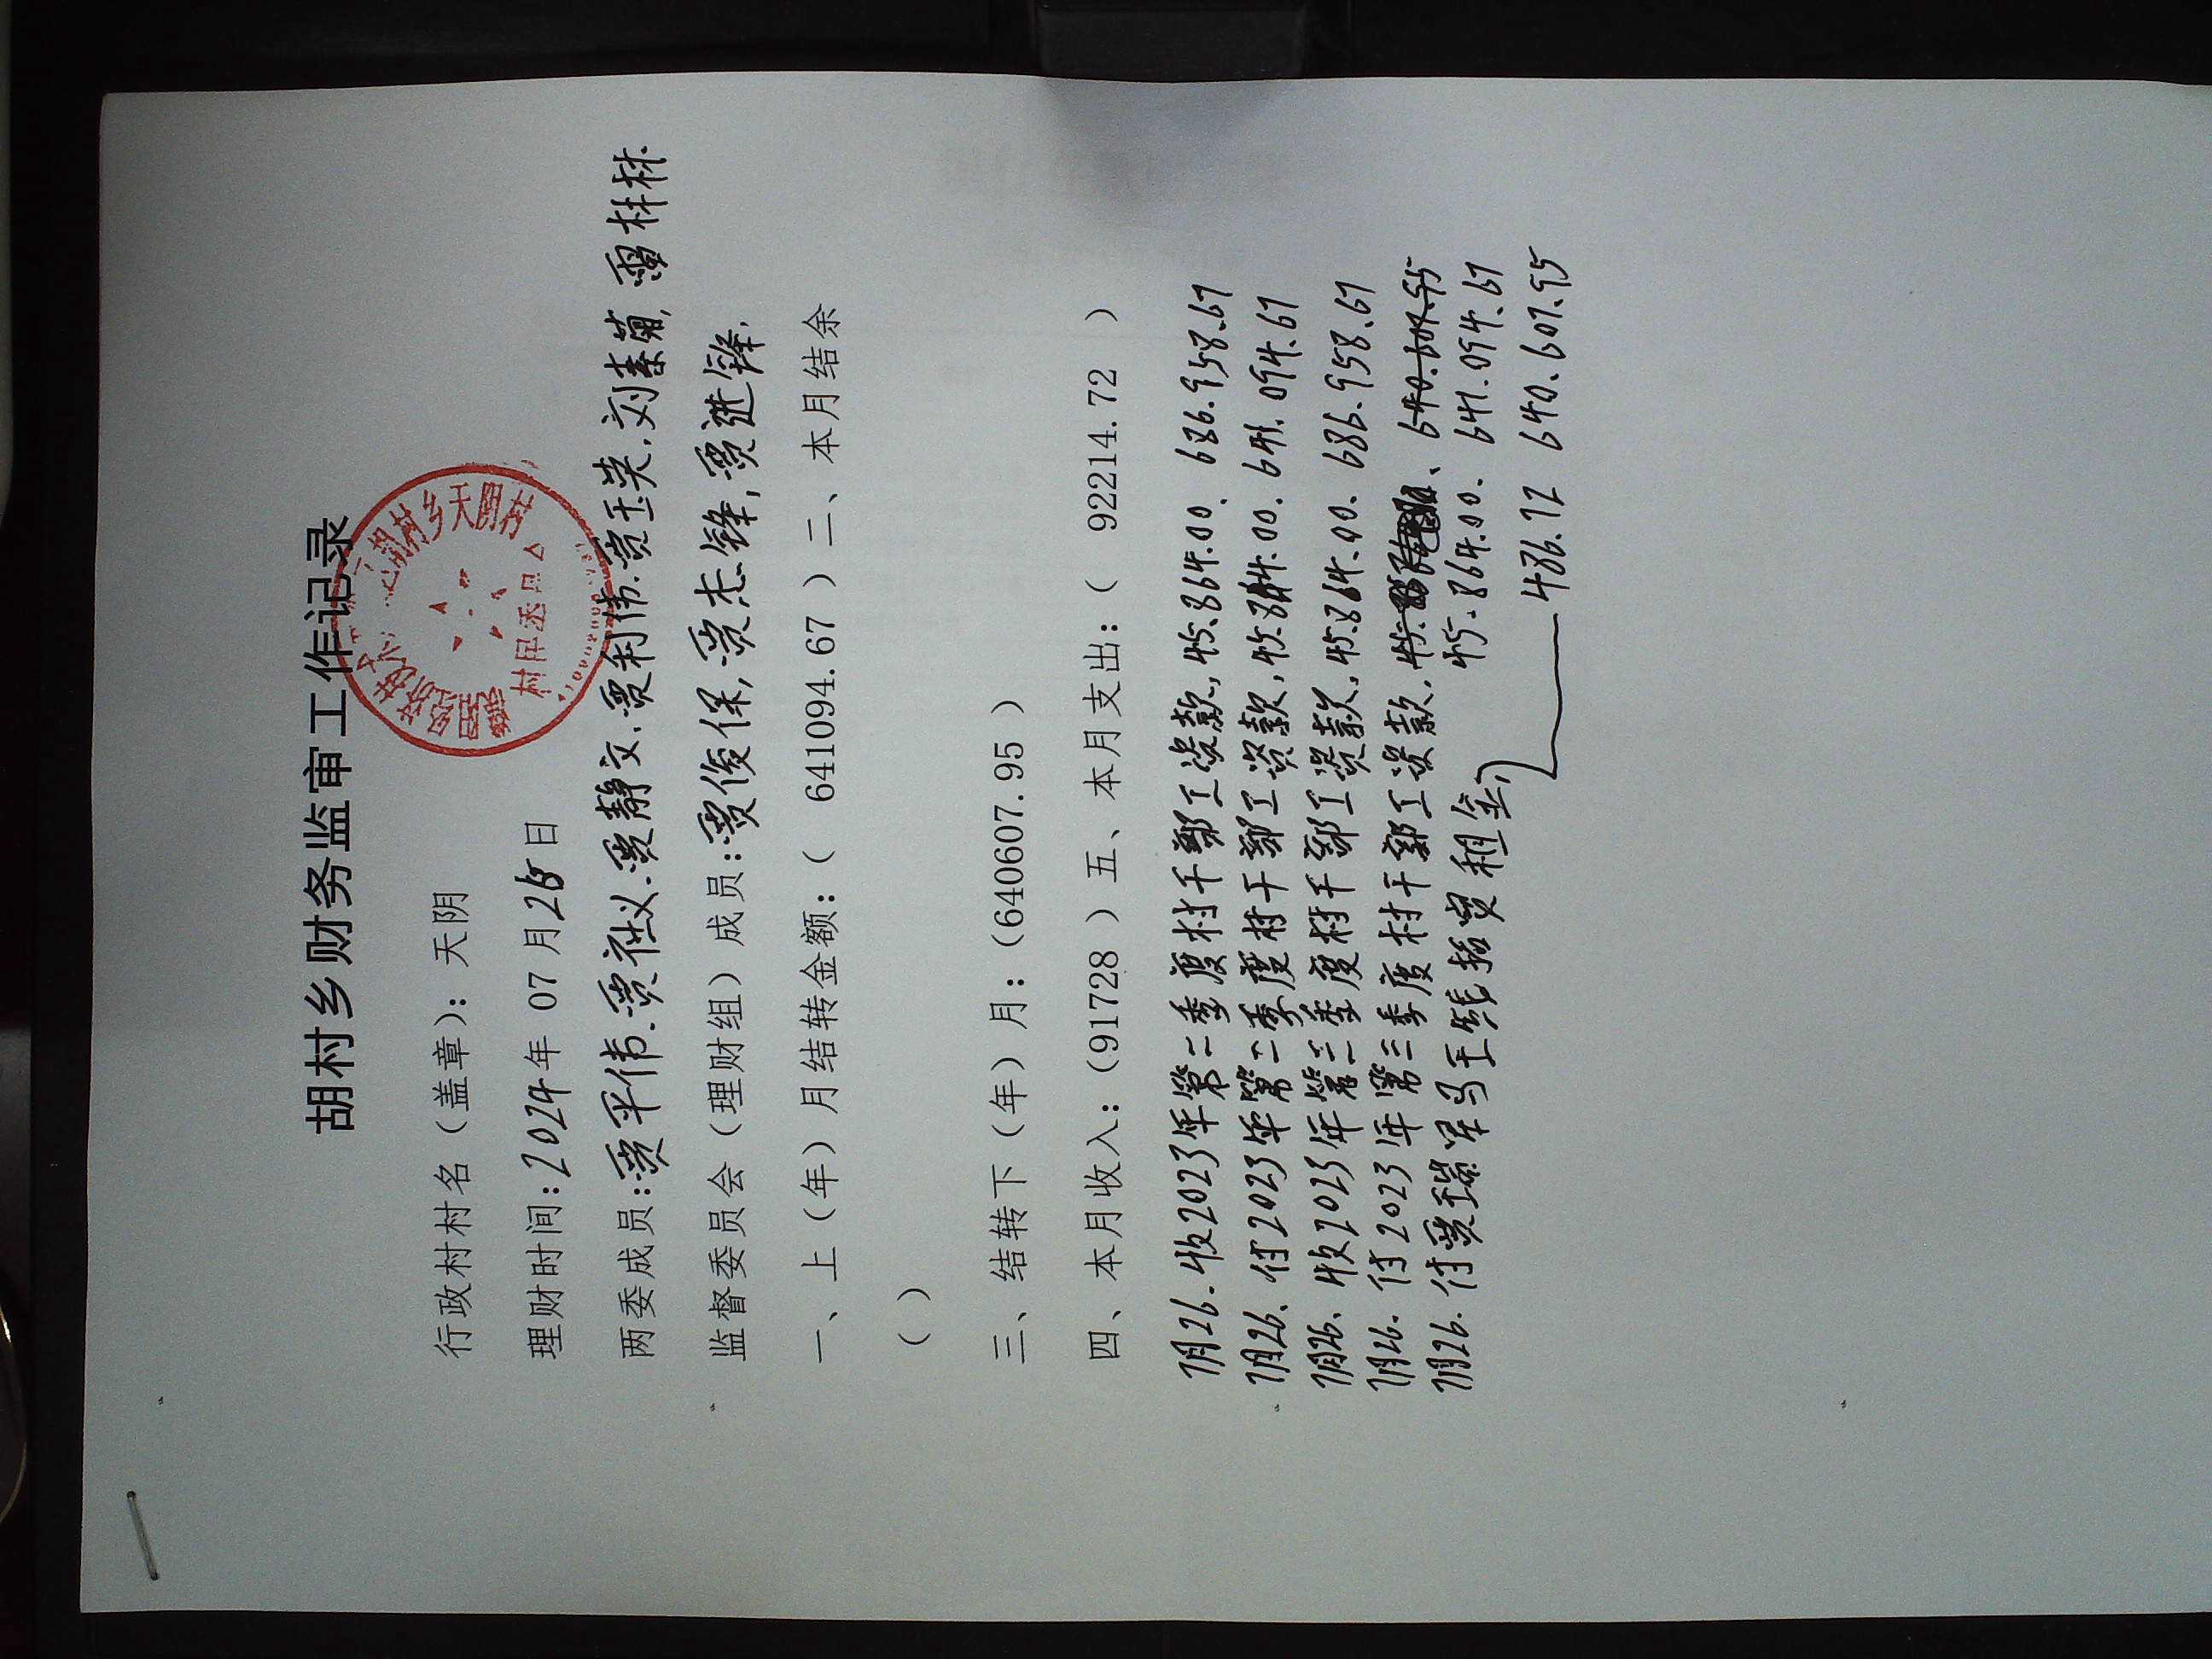 胡村乡财务监审工作记录
行政村村名（盖章）：天阴
理财时间：2024年 07 月 26 日
两委成员：贾平伟.贾社义.贾静文.贾利伟.贾玉荣.刘素菊,雷林林
监督委员会（理财组）成员：贾俊保,贾杰锋,贾进锋,
一、上（年）月结转金额：（ 641094.67 ）二、本月结余
（ ）
三、结转下（年）月：（640607.95 ）
四、本月收入：（91728 ）五、本月支出：（ 92214.72 ）
7月26.收2023年第二季度村干部工资款,45.864.00. 686.958.67
7月26.付2023年第二季度村干部工资款,45.864.00. 641.094.67
7月26.收2023年第三季度村干部工资款,45.864.00. 686.958.67
7月26.付2023年第三季度村干部工资款, 640.607.95
45.864.00. 641.094.67
7月26.付贾瑞军马王线拓宽租金,
486.72 640.607.95
胡村乡天阴村
村民委员会